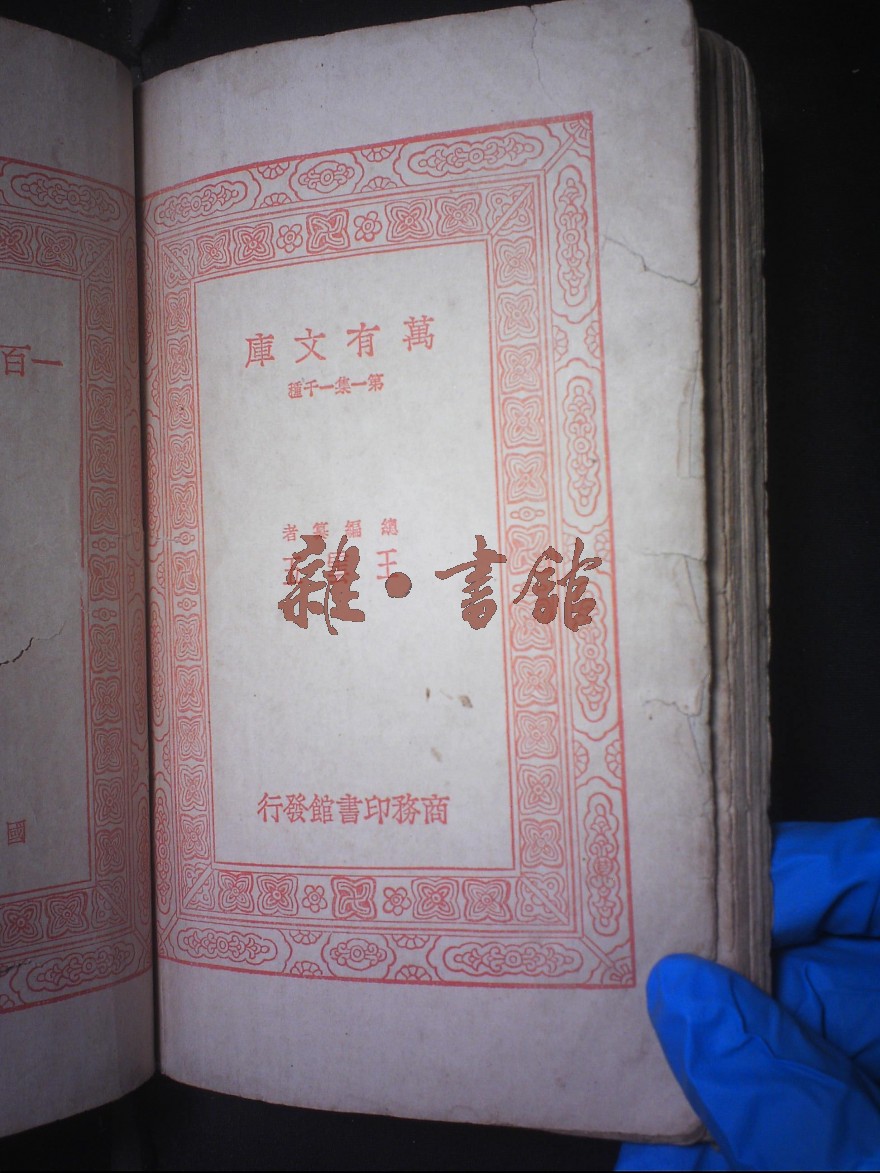 萬有文庫
第一集一千種
總編纂者
王雲五
商務印書館發行
雜·書館
一百
國